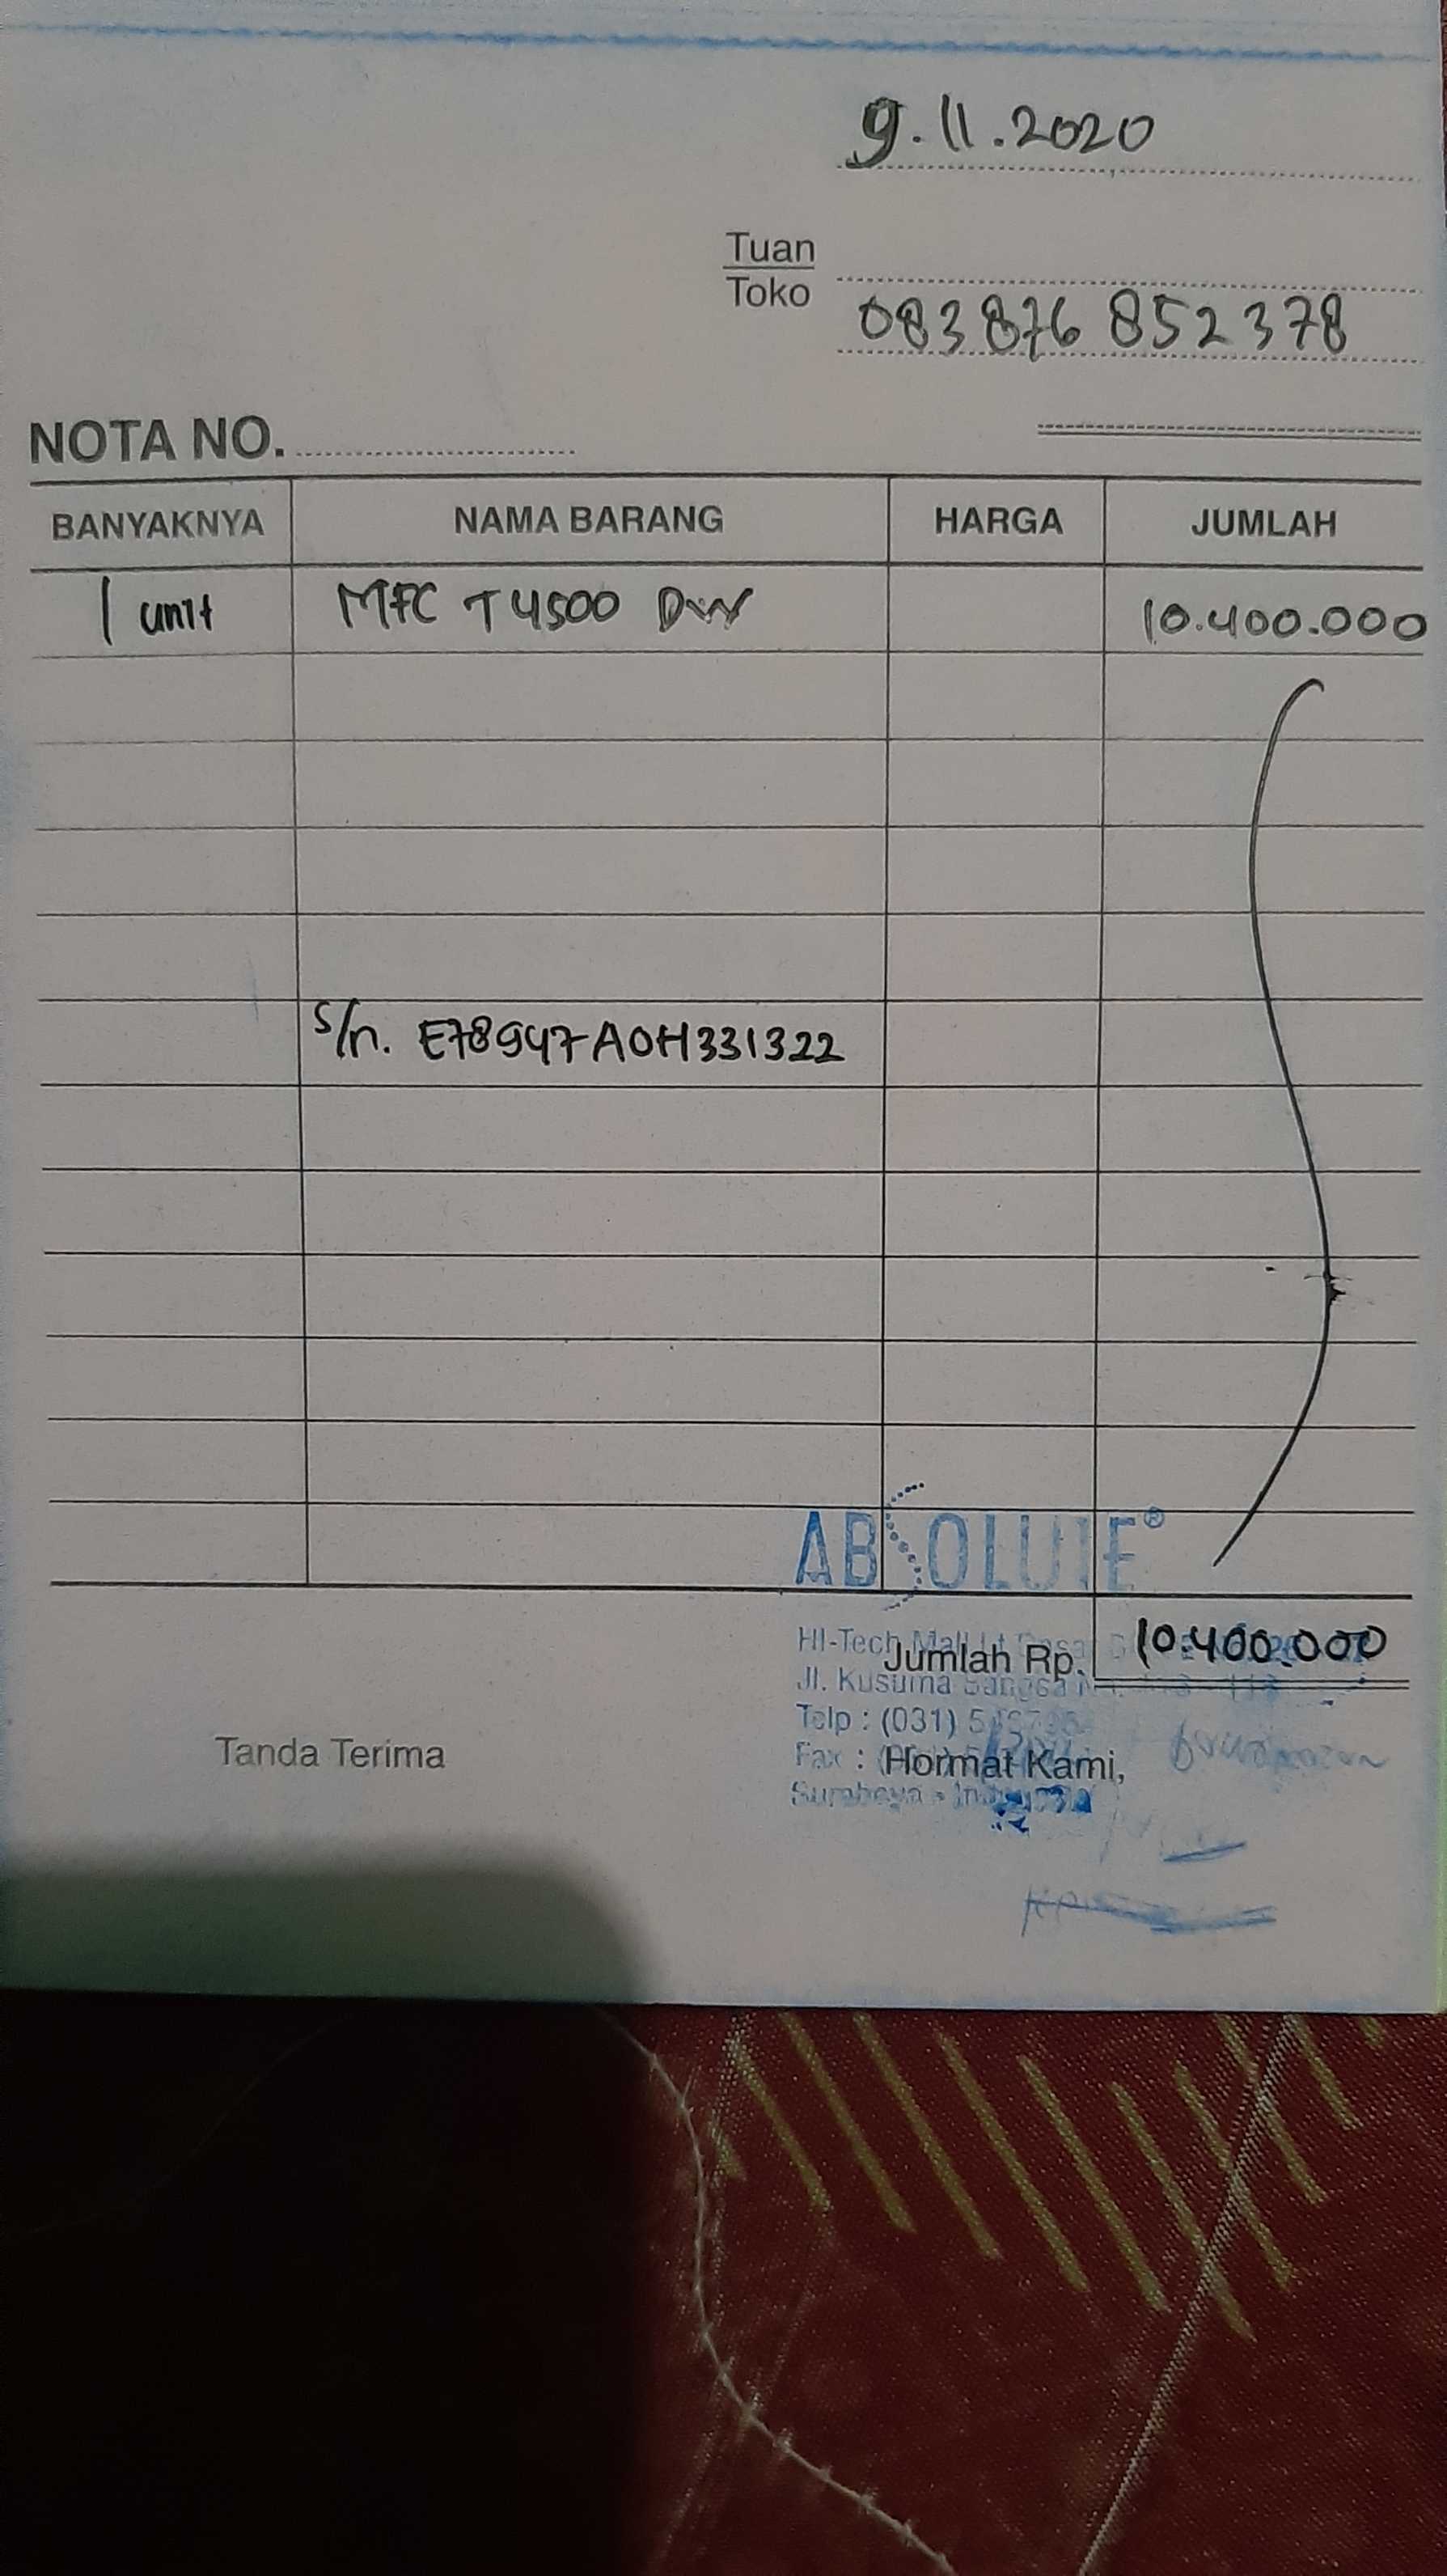 9.11.2020
Tuan
Toko
083876 852378
NOTA NO.
BANYAKNYA NAMA BARANG HARGA JUMLAH
1 unit MFC T4500 DW 10.400.000
S/n. E78947A0H331322
ABSOLUTE®
HI-Tech Mall Lt Dasar
Jumlah Rp. 10.400.000
Jl. Kusuma Bangsa
Telp : (031)
Fax :
Tanda Terima Hormat Kami,
Surabaya - Indonesia